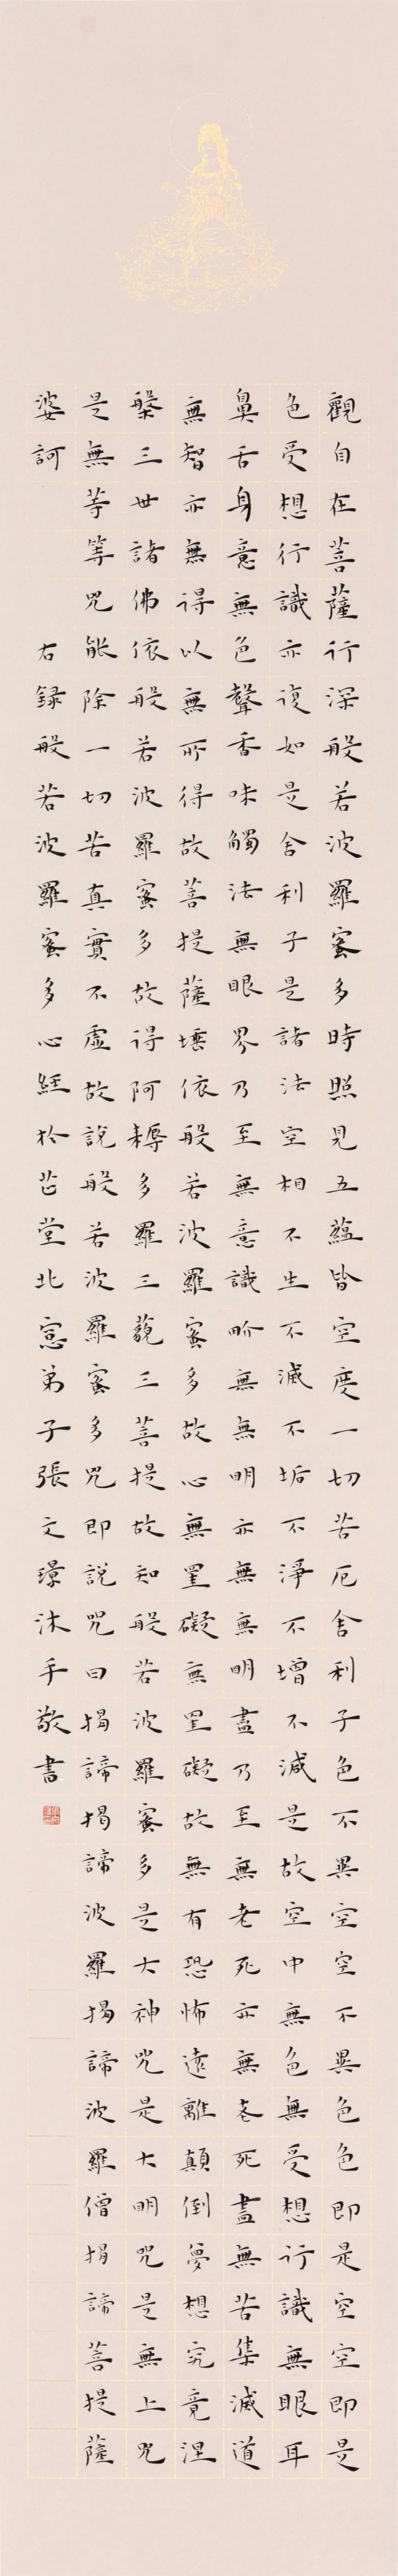 觀自在菩薩行深般若波羅蜜多時照見五蘊皆空度一切苦厄舍利子色不異空空不異色色即是空空即是
色受想行識亦復如是舍利子是諸法空相不生不滅不垢不淨不增不減是故空中無色無受想行識無眼耳
鼻舌身意無色聲香味觸法無眼界乃至無意識界無無明亦無無明盡乃至無老死亦無老死盡無苦集滅道
無智亦無得以無所得故菩提薩埵依般若波羅蜜多故心無罣礙無罣礙故無有恐怖遠離顛倒夢想究竟涅
槃三世諸佛依般若波羅蜜多故得阿耨多羅三藐三菩提故知般若波羅蜜多是大神咒是大明咒是無上咒
是無等等咒能除一切苦真實不虛故說般若波羅蜜多咒即說咒曰揭諦揭諦波羅揭諦波羅僧揭諦菩提薩
婆訶 右録般若波羅蜜多心經於芷堂北窓弟子張文璟沐手敬書